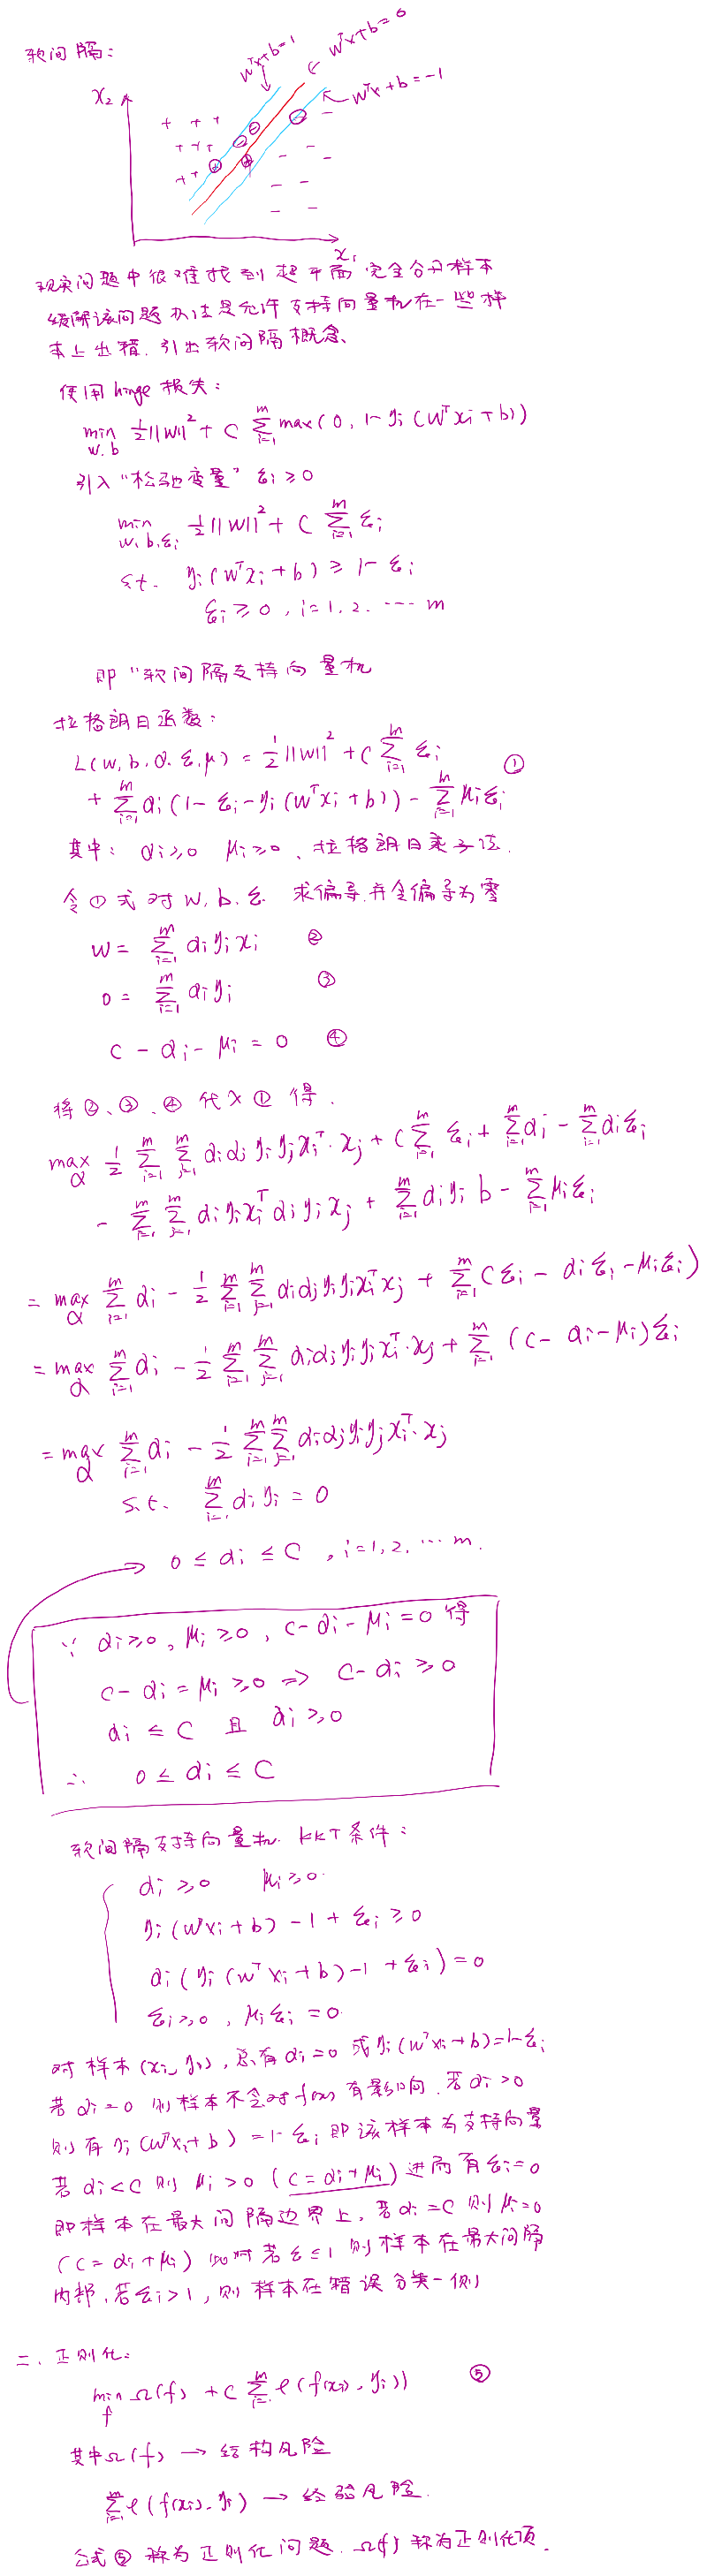 软间隔:
wᵀx+b=1
wᵀx+b=0
wᵀx+b=-1
x₂
x₁
现实问题中很难找到超平面完全分开样本
缓解该问题办法是允许支持向量机在一些样
本上出错.引出软间隔概念、
使用 hinge 损失:
min_{w.b} ½||w||² + C Σ_{i=1}^m max(0, 1-yᵢ(wᵀxᵢ+b))
引入"松弛变量" ξᵢ≥0
min_{w,b,ξᵢ} ½||w||² + C Σ_{i=1}^m ξᵢ
s.t. yᵢ(wᵀxᵢ+b) ≥ 1-ξᵢ
ξᵢ≥0, i=1,2.…m
即"软间隔支持向量机
拉格朗日函数:
L(w,b,α,ξ,μ) = ½||w||² + C Σ_{i=1}^m ξᵢ ①
+ Σ_{i=1}^m αᵢ(1-ξᵢ-yᵢ(wᵀxᵢ+b)) - Σ_{i=1}^m μᵢξᵢ
其中: αᵢ≥0 μᵢ≥0、拉格朗日乘子法.
令①式对w,b,ξ 求偏导,并令偏导为零
w = Σ_{i=1}^m αᵢyᵢxᵢ ②
0 = Σ_{i=1}^m αᵢyᵢ ③
C-αᵢ-μᵢ=0 ④
将②、③、④代入①得.
max_α ½ Σ_{i=1}^m Σ_{j=1}^m αᵢαⱼyᵢyⱼxᵢᵀ·xⱼ + C Σ_{i=1}^m ξᵢ + Σ_{i=1}^m αᵢ - Σ_{i=1}^m αᵢξᵢ
- Σ_{i=1}^m Σ_{j=1}^m αᵢyᵢxᵢᵀαⱼyⱼxⱼ + Σ_{i=1}^m αᵢyᵢ b - Σ_{i=1}^m μᵢξᵢ
= max_α Σ_{i=1}^m αᵢ - ½ Σ_{i=1}^m Σ_{j=1}^m αᵢαⱼyᵢyⱼxᵢᵀxⱼ + Σ_{i=1}^m (Cξᵢ-αᵢξᵢ-μᵢξᵢ)
= max_α Σ_{i=1}^m αᵢ - ½ Σ_{i=1}^m Σ_{j=1}^m αᵢαⱼyᵢyⱼxᵢᵀ·xⱼ + Σ_{i=1}^m (C-αᵢ-μᵢ)ξᵢ
= max_α Σ_{i=1}^m αᵢ - ½ Σ_{i=1}^m Σ_{j=1}^m αᵢαⱼyᵢyⱼxᵢᵀ·xⱼ
s.t. Σ_{i=1}^m αᵢyᵢ=0
0≤αᵢ≤C, i=1,2,…m.
∵ αᵢ≥0, μᵢ≥0, C-αᵢ-μᵢ=0 得
C-αᵢ=μᵢ≥0 ⇒ C-αᵢ≥0
αᵢ≤C 且 αᵢ≥0
∴ 0≤αᵢ≤C
软间隔支持向量机 KKT条件:
αᵢ≥0 μᵢ≥0.
yᵢ(wᵀxᵢ+b)-1+ξᵢ≥0
αᵢ(yᵢ(wᵀxᵢ+b)-1+ξᵢ)=0
ξᵢ≥0, μᵢξᵢ=0.
对样本(xᵢ,yᵢ),总有αᵢ=0 或yᵢ(wᵀxᵢ+b)=1-ξᵢ
若αᵢ=0 则样本不会对f(x)有影响.若αᵢ>0
则有yᵢ(wᵀxᵢ+b)=1-ξᵢ即该样本为支持向量
若αᵢ<C 则 μᵢ>0 (C=αᵢ+μᵢ)进而有ξᵢ=0
即样本在最大间隔边界上,若αᵢ=C 则μᵢ=0
(C=αᵢ+μᵢ)此时若ξ≤1则样本在最大间隔
内部,若ξᵢ>1,则样本在错误分类一侧
二、正则化:
min_f Ω(f) + C Σ_{i=1}^m ℓ(f(xᵢ),yᵢ)) ⑤
其中Ω(f) → 结构风险
Σ_{i=1}^m ℓ(f(xᵢ),yᵢ) → 经验风险.
公式⑤称为正则化问题.Ω(f)称为正则化项.